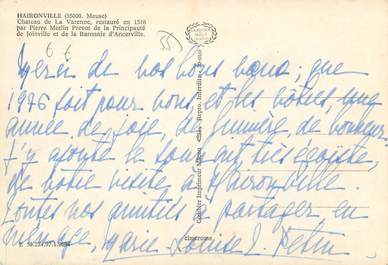 HAIRONVILLE (55000. Meuse)
Chateau de La Varenne, restauré en 1516
par Pierre Merlin Prevot de la Principauté
de Joinville et de la Baronnie d'Ancerville.
Merci de vos bons vœux ; que
1976 soit pour vous, et les vôtres, une
année de joie, de lumière, de bonheur
J'y ajoute le souhait très égoïste,
de votre visite à Haironville.
Toutes nos amitiés à partager en
ménage, Marie-Louise
Combier Imprimeur Mâcon
cim